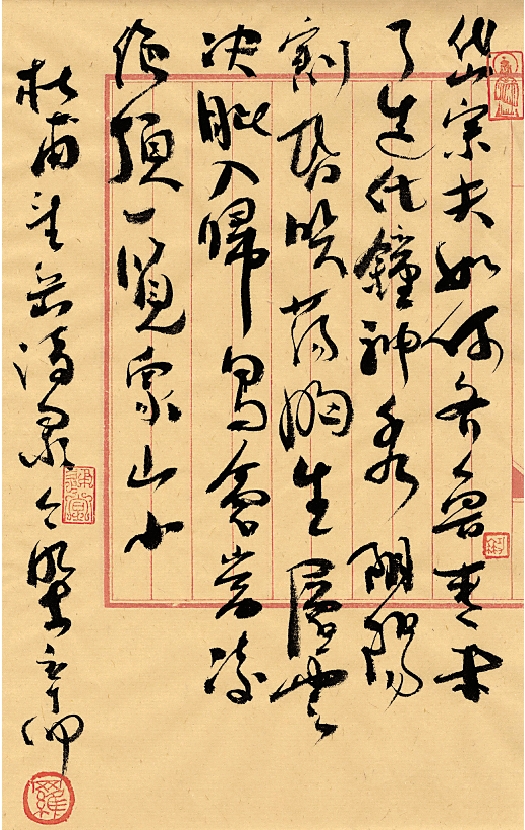 岱宗夫如何齊魯青未
了造化鐘神秀陰陽
割昏曉蕩胸生層雲
决眦入歸鳥會當凌
絕頂一覽衆山小
杜甫望岳詩